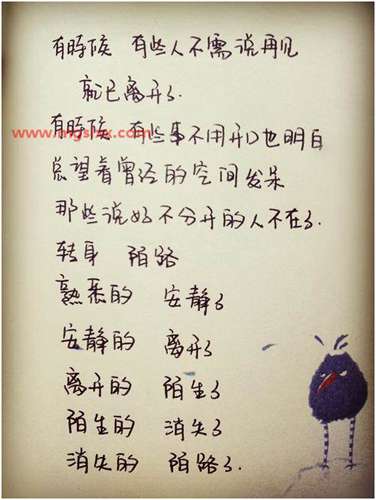 有时候 有些人不需说再见
就已离开了
有时候 有些事不用开口也明白
总望着曾经的空间发呆
www.mgshx.com
那些说好不分开的人不在了.
转身 陌路
熟悉的 安静了
安静的 离开了
离开的 陌生了
陌生的 消失了
消失的 陌路了.